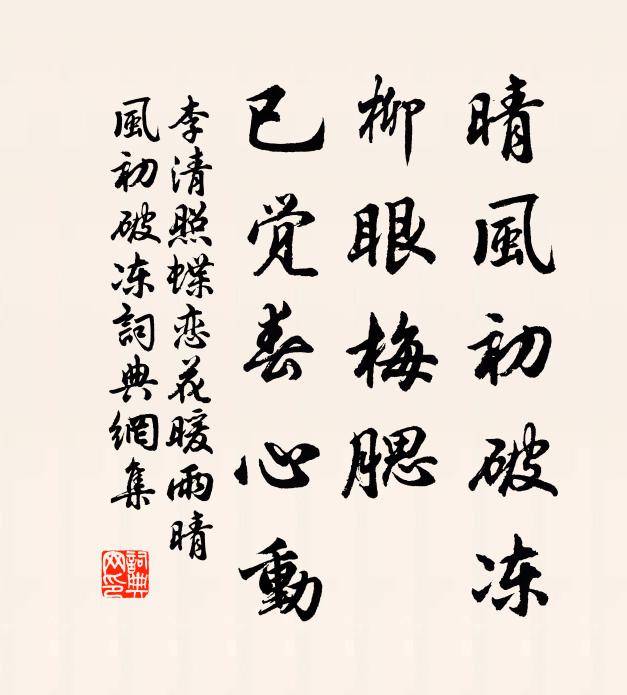 晴風初破冻
柳眼梅腮
已觉春心動
李清照蝶恋花暖雨晴
風初破冻詞典網集
詞典网印